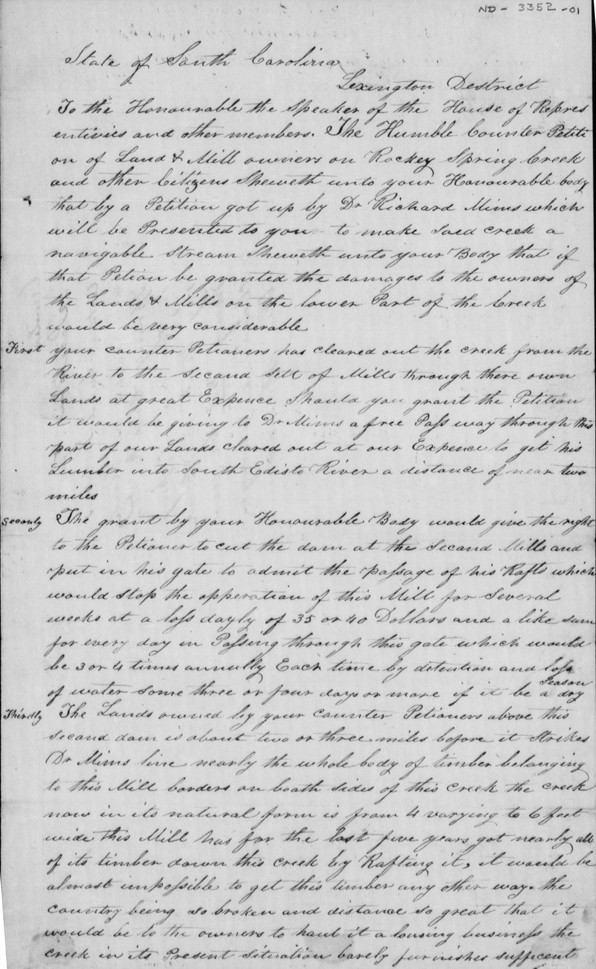 ND - 3352 -01
State of South Carolina
Lexington Destrict
To the Honourable the Speaker of the House of Repres
entivies and other members. The Humble Counter Petiti
on of Land & Mill owners on Rockey Spring Creek
and other Citizens Sheweth unto your Honourable body
that by a Petition got up by Dr Richard Mims which
will be Presented to you to make Said creek a
navigable Stream Sheweth unto your Body that if
that Petion be granted the damages to the owners of
the Lands & Mills on the lower Part of the Creek
would be very considerable
First your counter Petioners has cleared out the creek from the
River to the Second Sett of Mills through there own
Lands at great Expence Should you grant the Petition
it would be giving to Dr Mims a free Pass way through this
part of our Lands cleared out at our Expence to get his
Lumber into South Edisto River a distance of near two
miles
Seconly The grant by your Honourable Body would give the right
to the Petioner to cut the dam at the Second Mills and
put in his gate to admit the passage of his Rafts which
would stop the opperation of this Mill for Several
weeks at a loss dayly of 35 or 40 Dollars and a like sum
for every day in Passing through this gate which would
be 3 or 4 times annually Each time by detention and loss
of water some three or four days or more if it be a dry Season
Thirdly The Lands owned by your Counter Petioners above this
second dam is about two or three miles before it Strikes
Dr Mims line nearly the whole body of timber belonging
to this Mill borders on boath sides of this creek the creek
now in its natural form is from 4 varying to 6 feet
wide this Mill has for the last five years got nearly all
of its timber down this creek by Rafting it, it would be
almost impossible to get this timber any other way. the
country being so broken and distance so great that it
would be to the owners to haul it a lousing business the
creek in its Present Situation barely furnishes sufficent